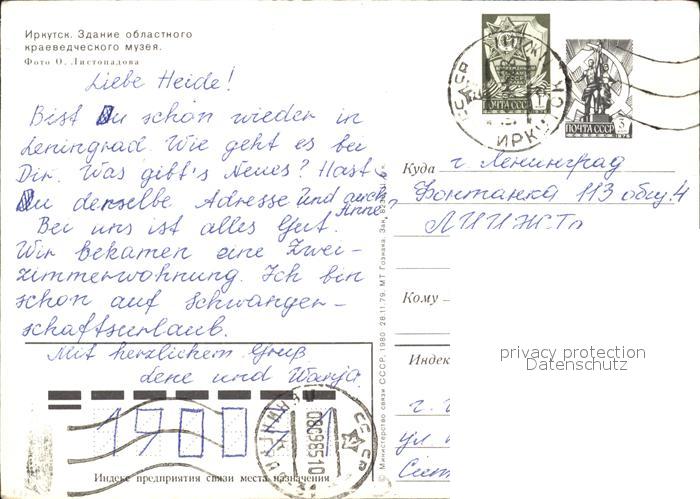 Иркутск. Здание областного
краеведческого музея.
Фото О. Листопадова
Liebe Heide!
Bist Du schon wieder in
Leningrad. Wie geht es bei
Dir. Was gibt's Neues? Hast
Du derselbe Adresse und auch
Anne?
Bei uns ist alles Gut.
Wir bekamen eine Zwei-
zimmerwohnung. Ich bin
schon auf Schwanger-
schaftsurlaub.
Mit herzlichem Gruß
Lene und Wanja.
19001
Индекс предприятия связи места назначения
© Министерство связи СССР. 1980 28.11.79. МТ Гознака. Зак.
ПОЧТА СССР 1
ПОЧТА СССР 3
ИРКУТСК
СССР
Куда г. Ленинград
Фонтанка 113 общ. 4
ЛИИЖТа
Кому
Индекс
г.
ул
privacy protection
Datenschutz